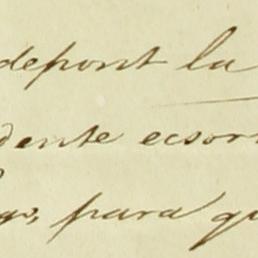 depont la
dente ecsor
go, para qu